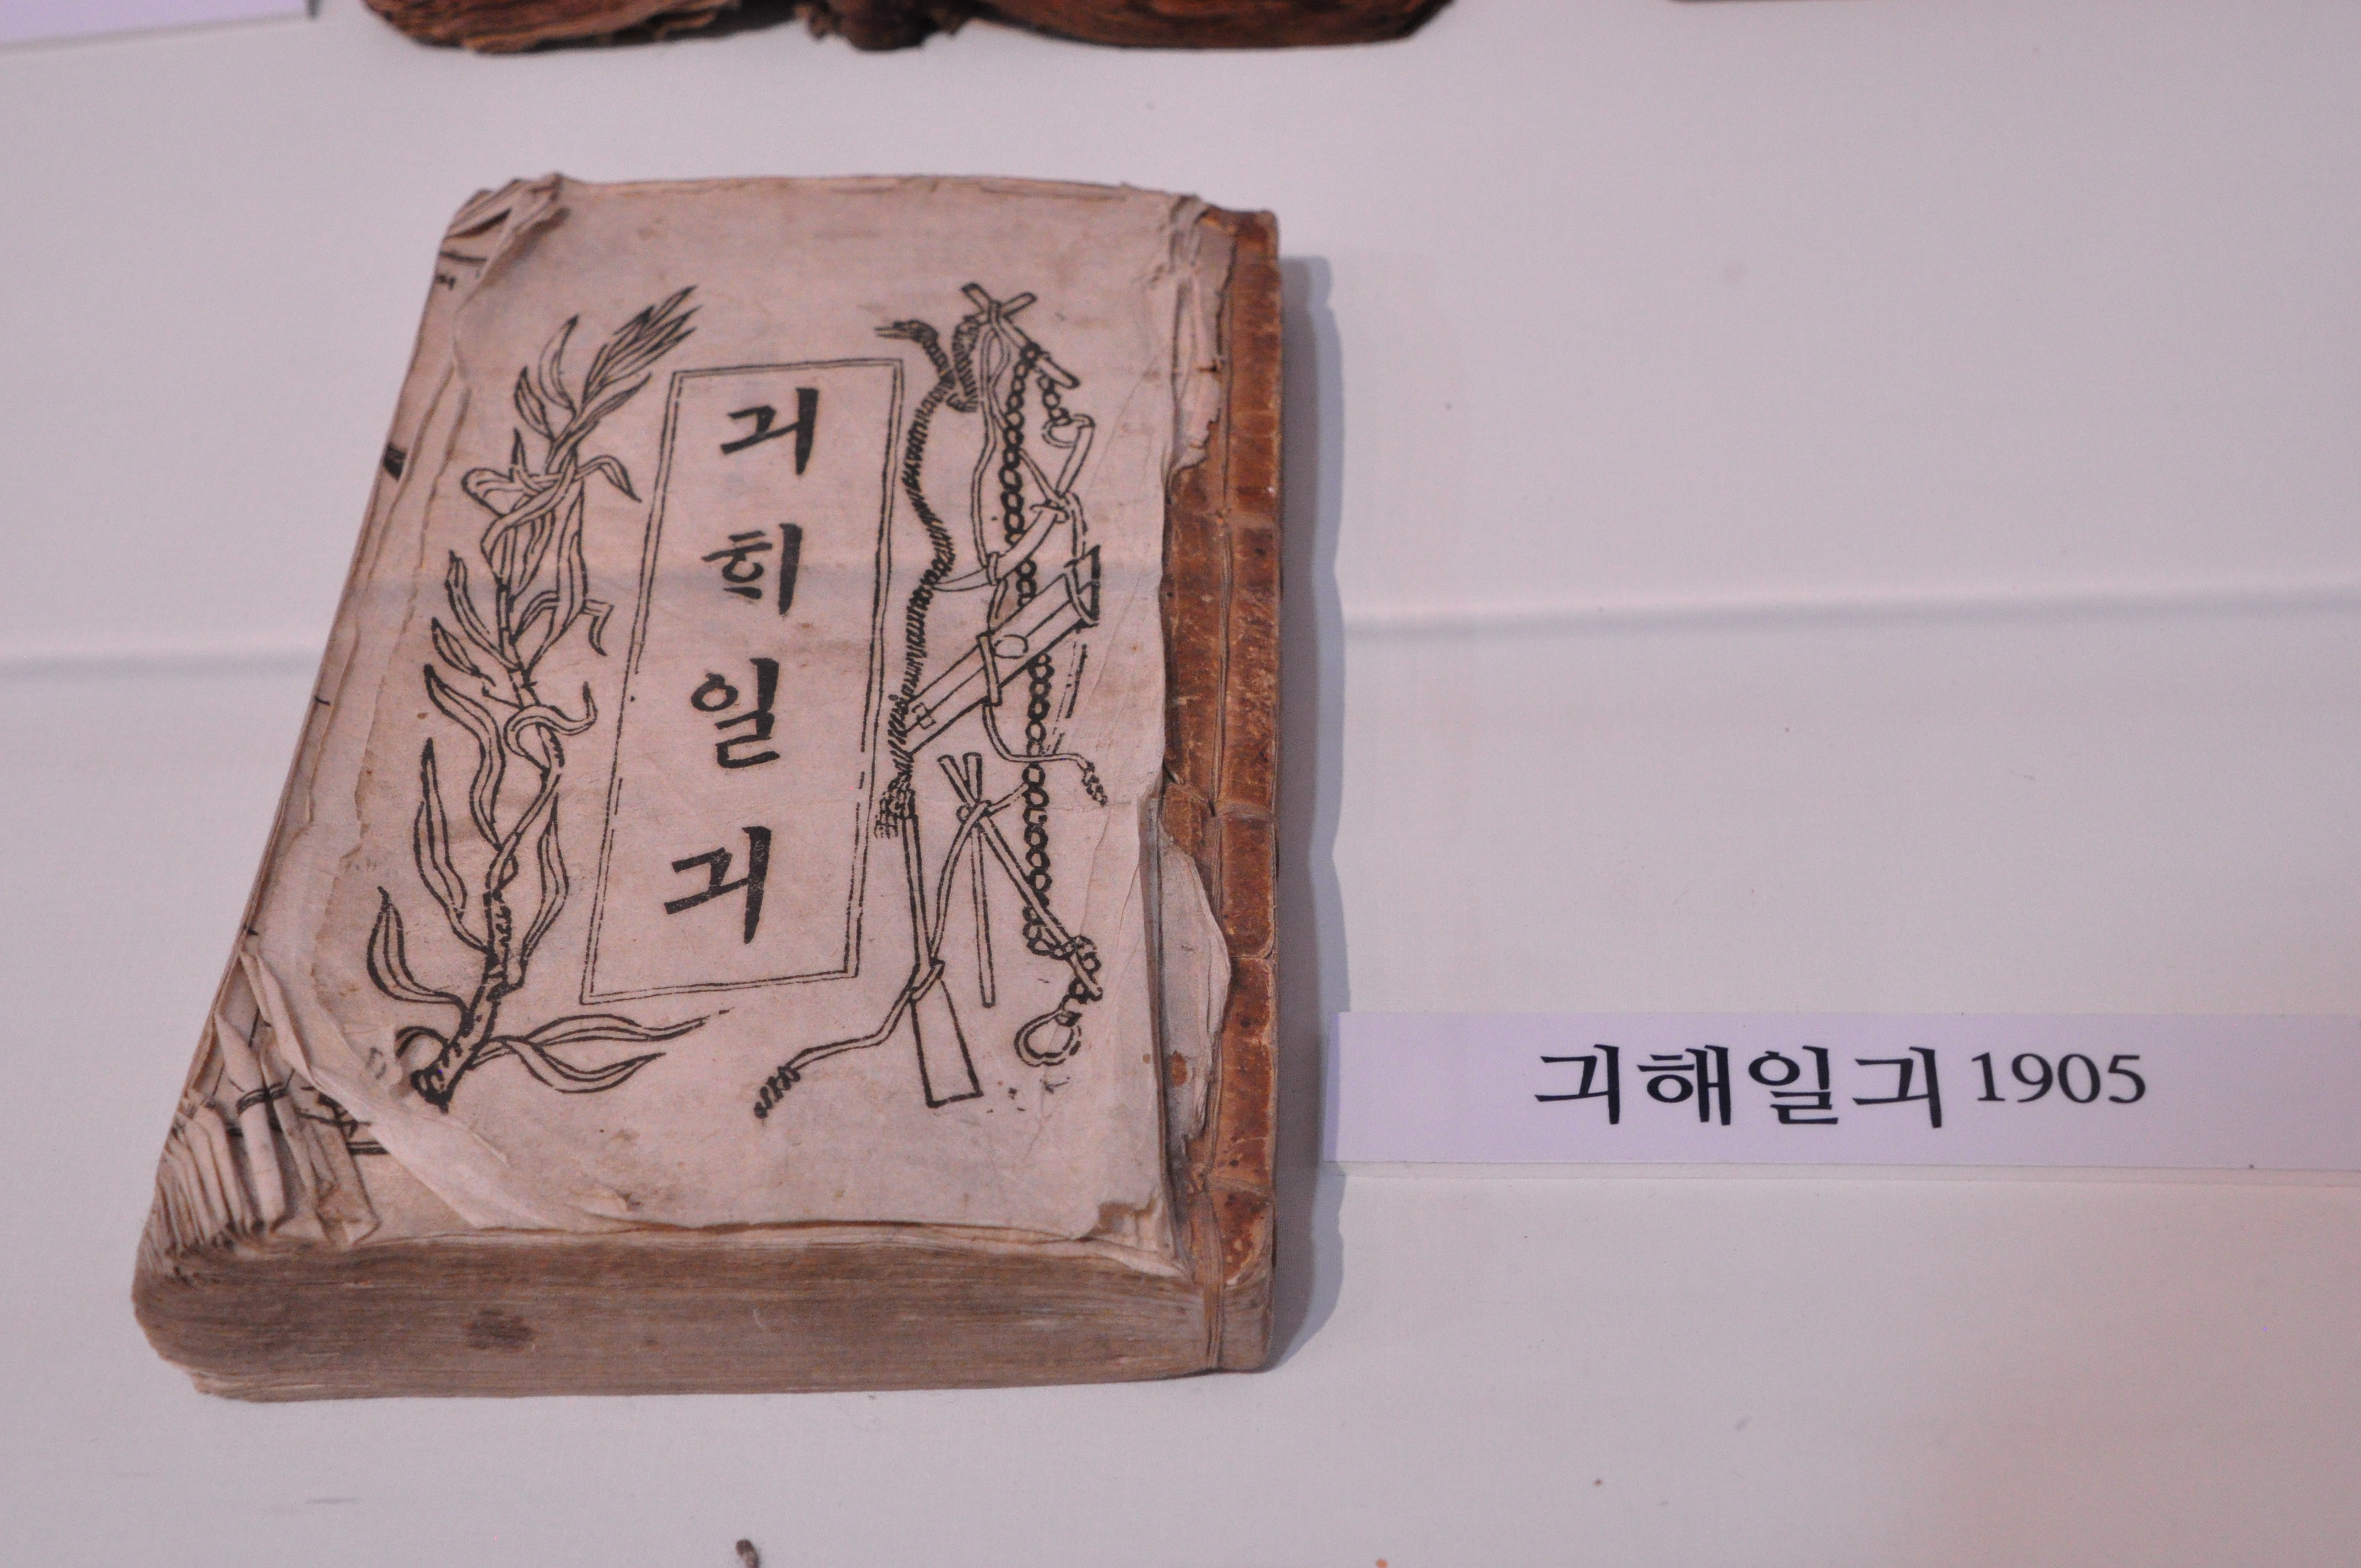 긔ᄒᆡ일긔
긔해일긔 1905